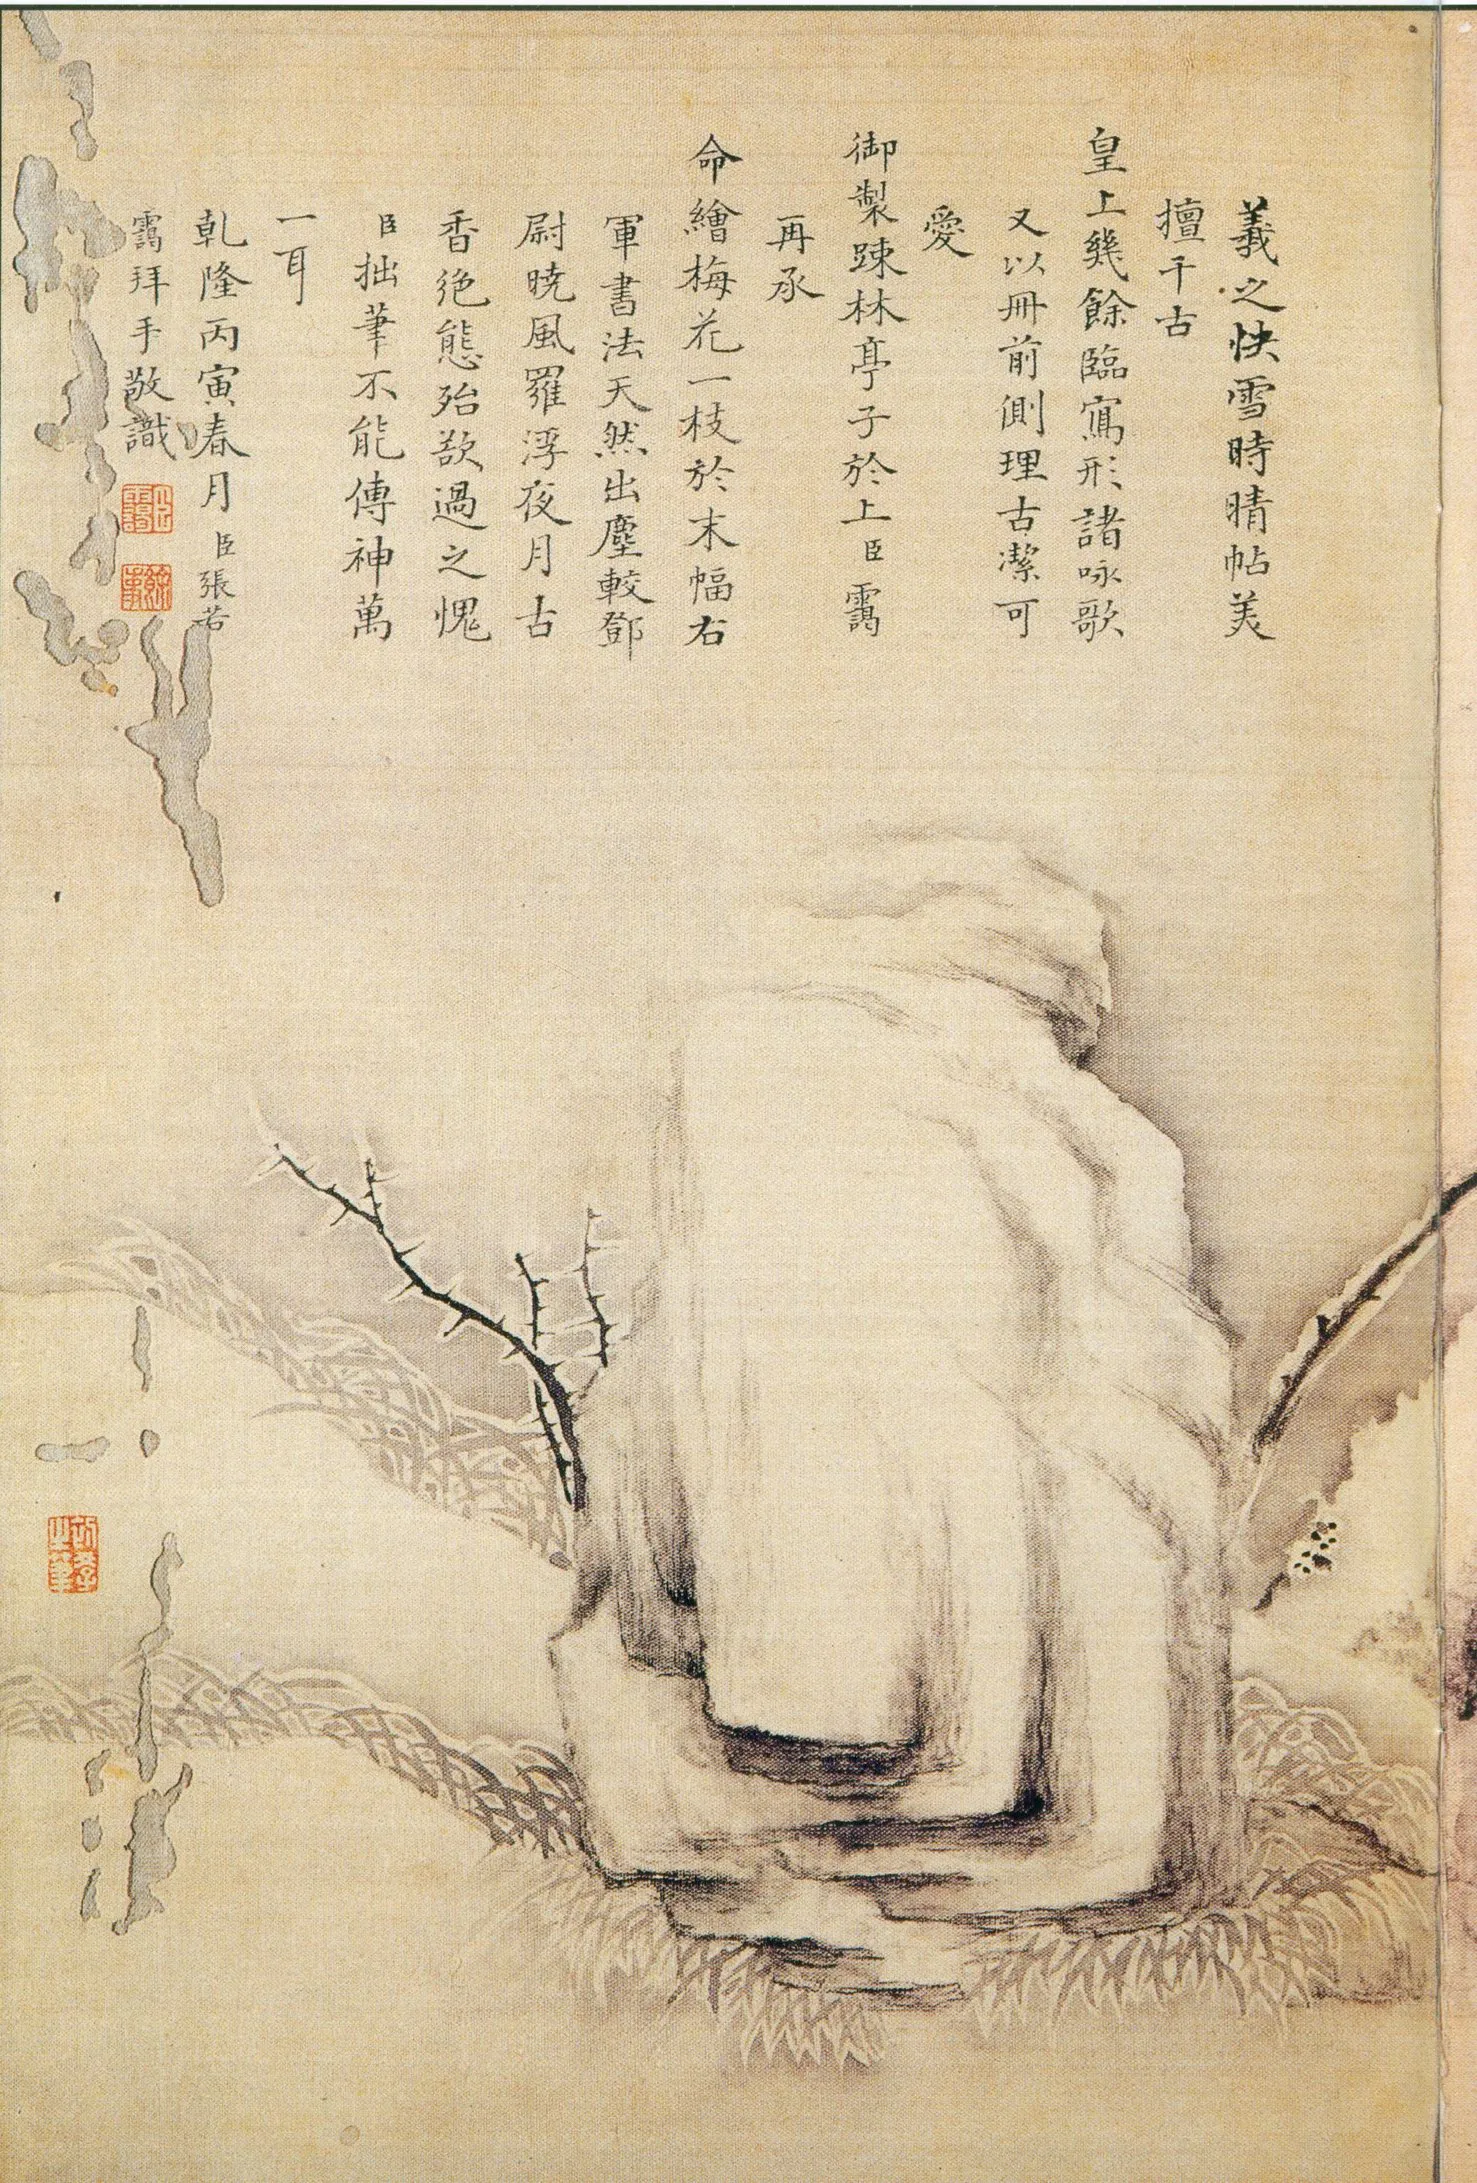 羲之快雪時晴帖美
擅千古
皇上幾餘臨寫形諸咏歌
又以冊前側理古潔可
愛
御製踈林亭子於上臣靄
再承
命繪梅花一枝於末幅右
軍書法天然出塵較鄧
尉暁風羅浮夜月古
香絶態殆欲過之愧
臣拙筆不能傳神萬
一耳
乾隆丙寅春月臣張若
靄拜手敬識
臣靄